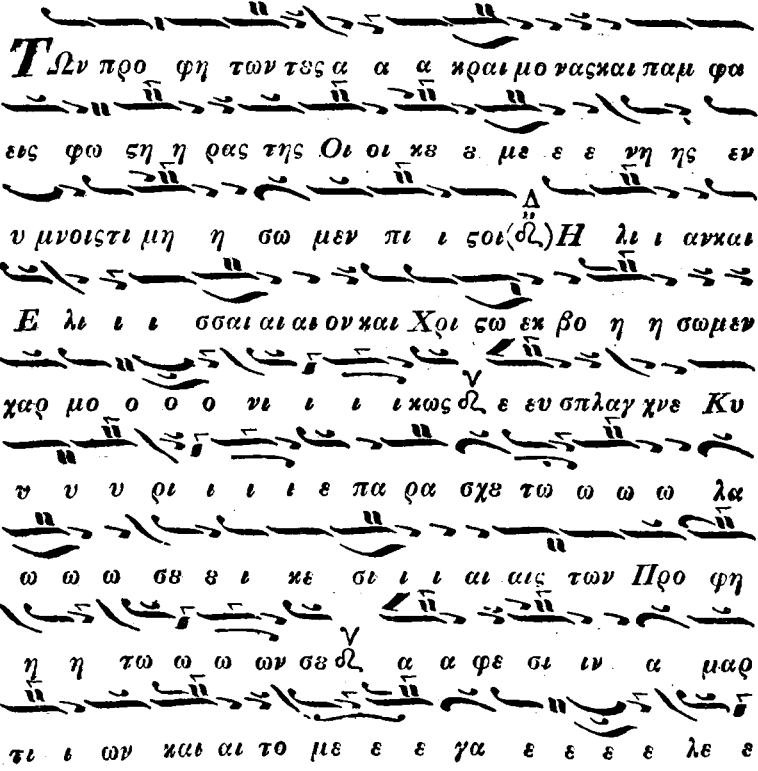 ΤΩν προ φη των τȣς α α α κραι μο νας και παμ φα
εις φω ϛη η ρας της Οι οι κȣ ȣ με ε ε νη ης εν
υ μνοις τι μη η σω μεν πι ι ϛοι (Δ) Η λι ι αν και
Ε λι ι ι σσαι αι αι ον και Χρι ϛω εκ βο η η σωμεν
χαρ μο ο ο ο νι ι ι ι κως ε ευ σπλαγ χνε Κυ
υ υ υ ρι ι ι ι ε πα ρα σχȣ τω ω ω ω λα
ω ω ω σȣ ȣ ι κε σι ι ι αι αις των Προ φη
η η τω ω ω ων σȣ α α φε σι ιν α μαρ
τι ι ων και αι το με ε ε γα ε ε ε ε λε ε